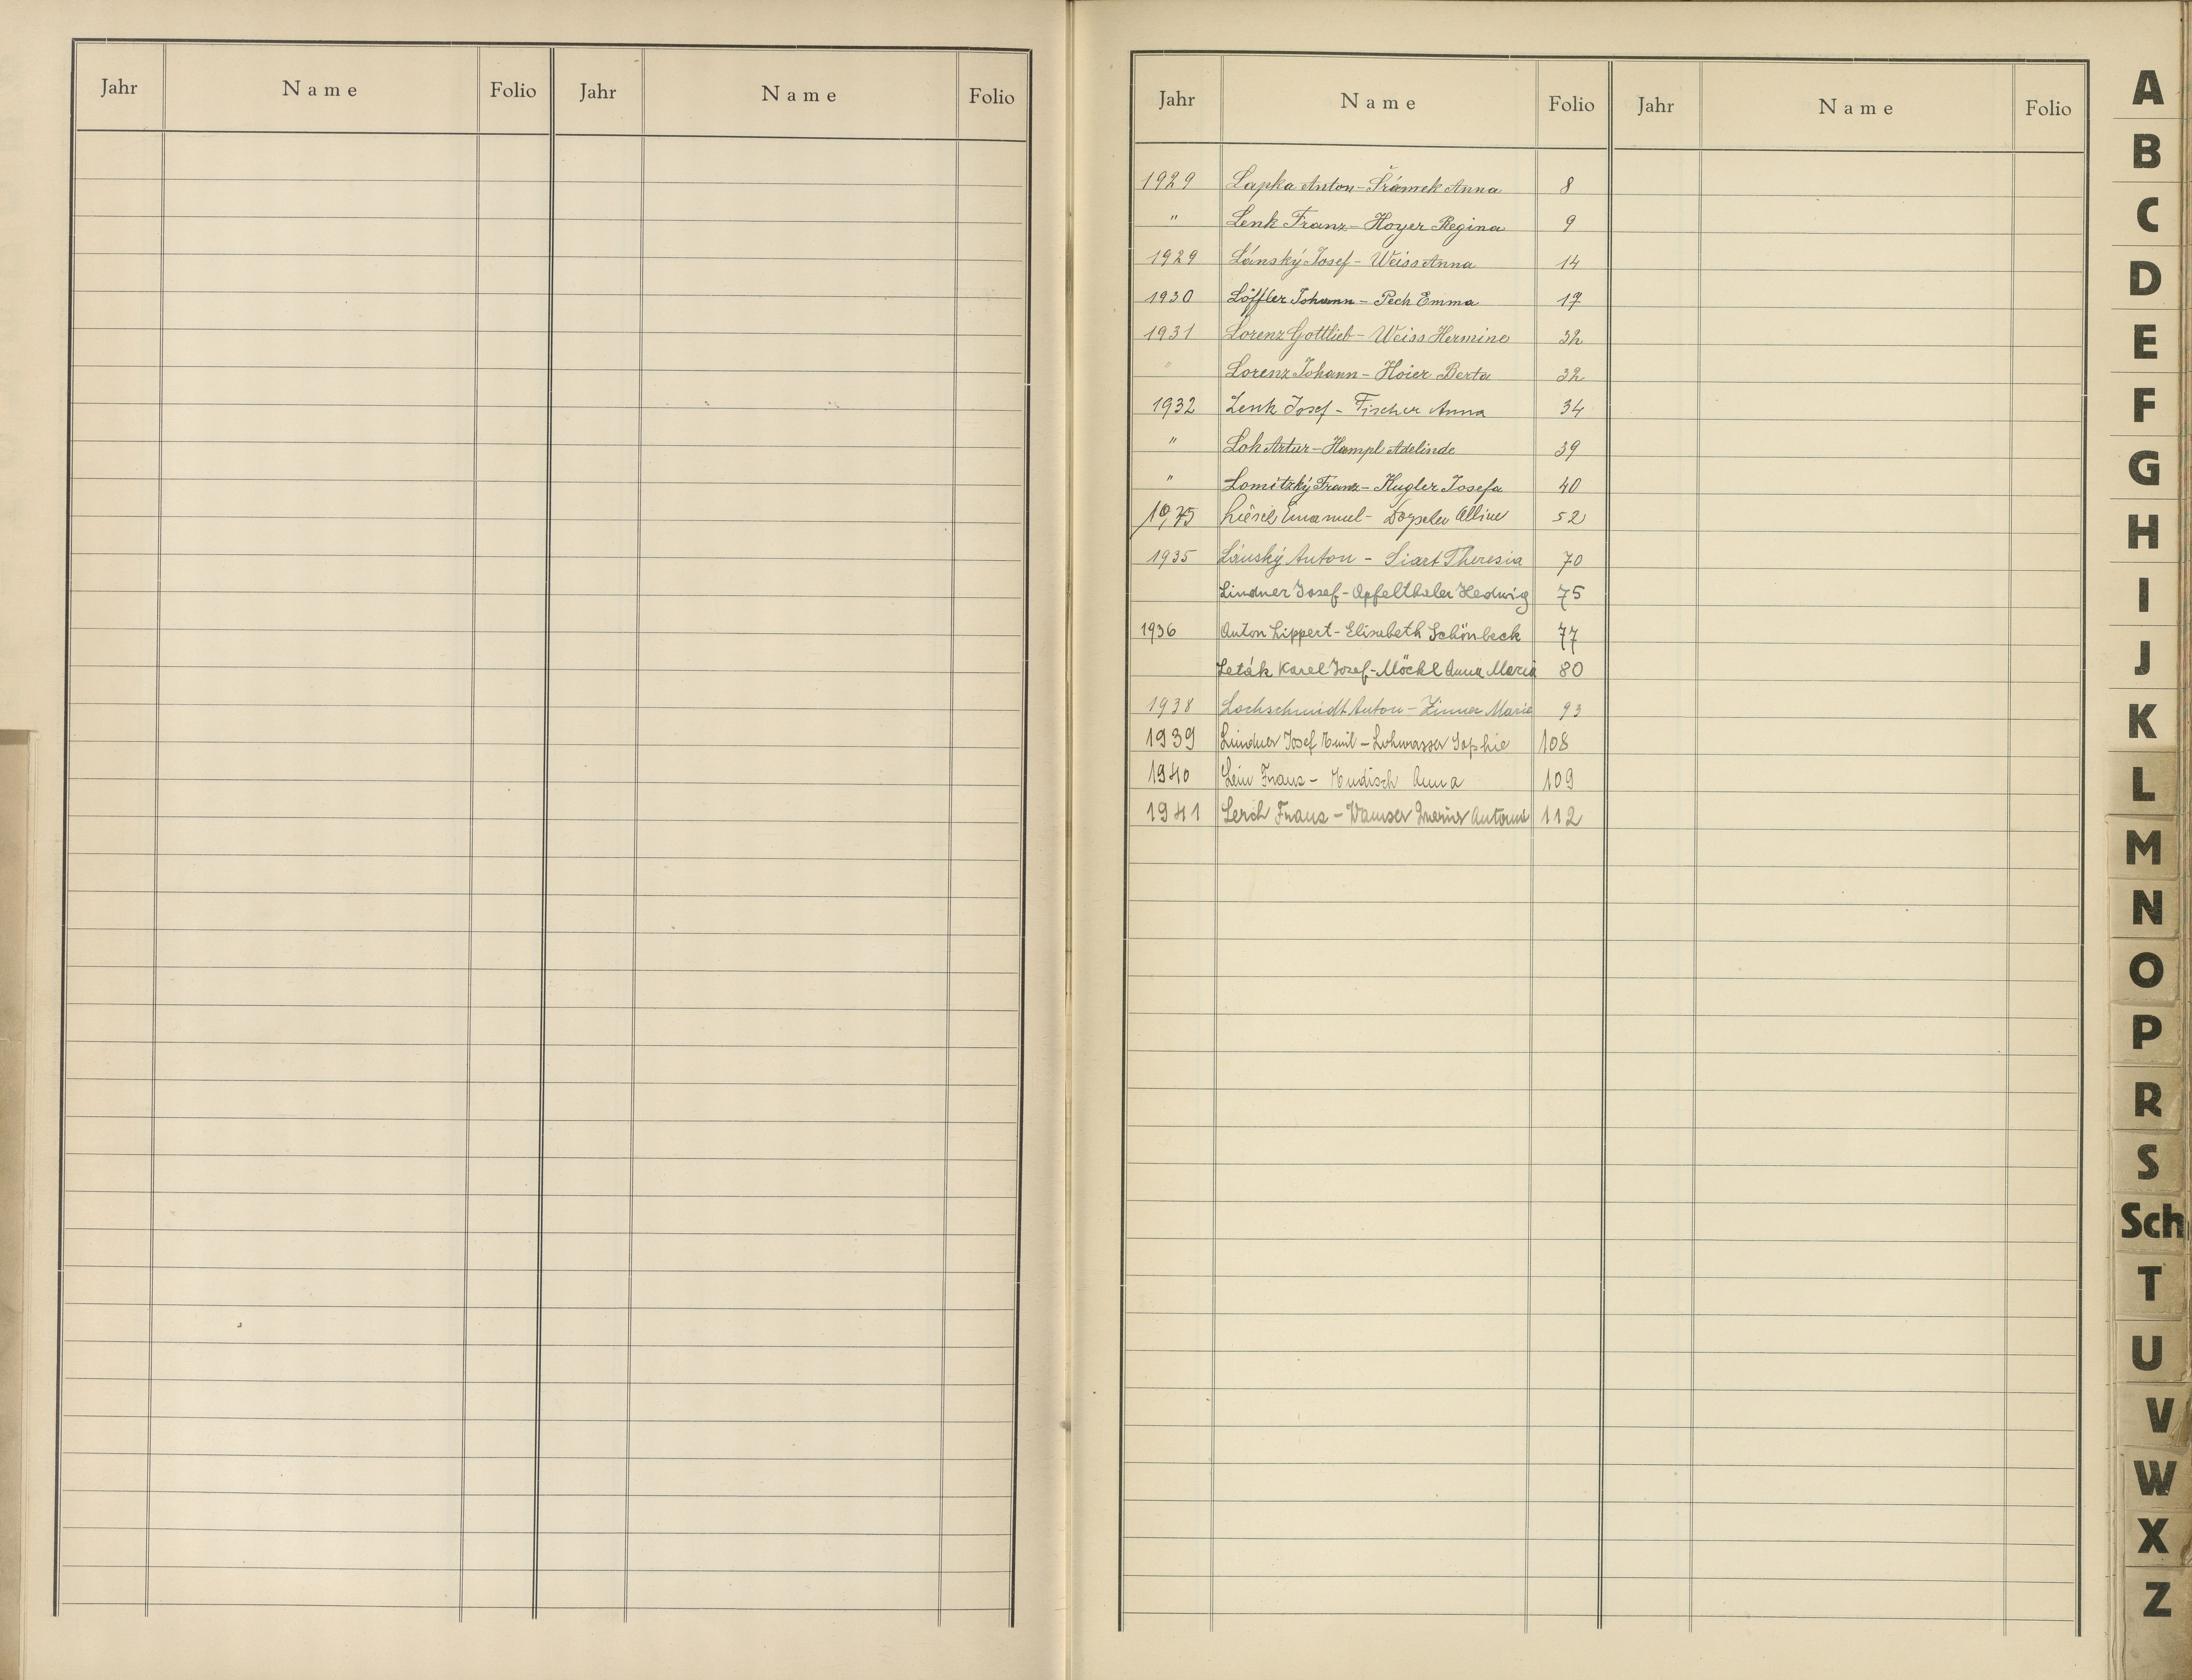 Jahr Name Folio Jahr Name Folio
Jahr Name Folio Jahr Name Folio
1929 Lapka Anton - Šrámek Anna 8
" Lenk Franz - Hoyer Regina 9
1929 Lánský Josef - Weiss Anna 14
1930 Löffler Johann - Pech Emma 17
1931 Lorenz Gottlieb - Weiss Hermine 32
" Lorenz Johann - Hoier Berta 32
1932 Lenk Josef - Fischer Anna 34
" Loh Artur - Hampl Adelinde 39
" Lomitzký Franz - Kugler Josefa 40
Emanuel - 52
1935 Lánský Anton - Siart Theresia 70
Lindner Josef - Apfelthaler Hedwig 75
1936 Anton Lippert - Elisabeth Schönbeck 77
Leták Karel Josef - Möckl Anna Maria 80
1938 Lochschmidt Anton - Zinner Marie 93
1939 Lindner Josef Emil - Lohwasser Sophie 108
1940 Lein Franz - Hudisch Anna 109
1941 Lerch Franz - Wamser 112
A
B
C
D
E
F
G
H
I
J
K
L
M
N
O
P
R
S
Sch
T
U
V
W
X
Z